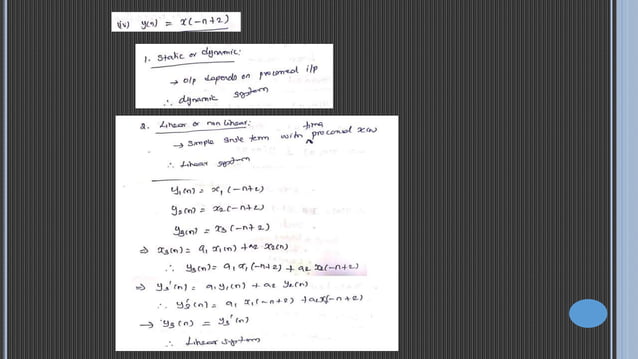 iv) y(n) = x(-n+2)
1. Static or dynamic:
→ o/p depends on processed i/p
∴ dynamic system
2. Linear or non linear:
→ Simple single term with time processed x(n)
∴ Linear system
y₁(n) = x₁(-n+2)
y₂(n) = x₂(-n+2)
y₃(n) = x₃(-n+2)
⇒ x₃(n) = a₁ x₁(n) + a₂ x₂(n)
∴ y₃(n) = a₁ x₁(-n+2) + a₂ x₂(-n+2)
⇒ y₃'(n) = a₁ y₁(n) + a₂ y₂(n)
∴ y₃'(n) = a₁ x₁(-n+2) + a₂x(-n+2)
→ y₃(n) = y₃'(n)
∴ Linear system